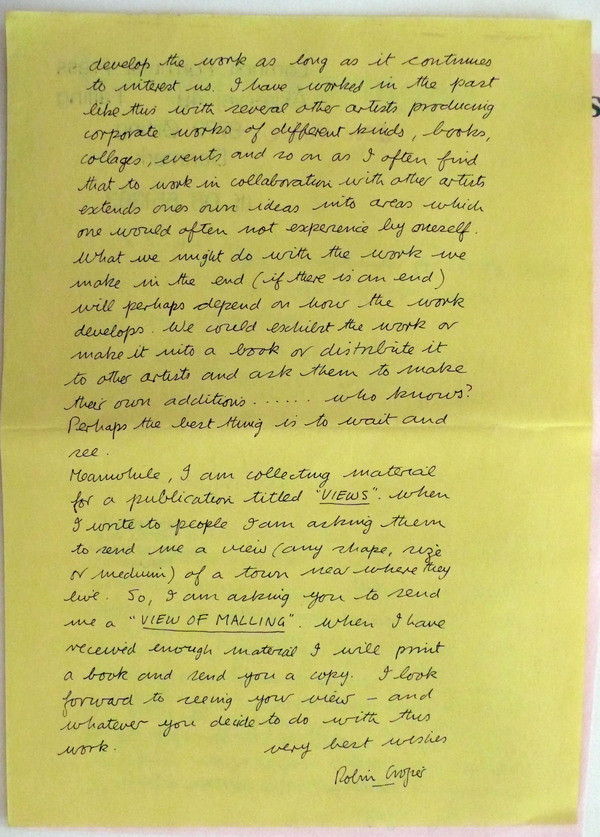 develop the work as long as it continues
to interest us. I have worked in the past
like this with several other artists producing
corporate works of different kinds, books,
collages, events and so on as I often find
that to work in collaboration with other artists
extends ones own ideas into areas which
one would often not experience by oneself.
What we might do with the work we
make in the end (if there is an end)
will perhaps depend on how the work
develops. We could exhibit the work or
make it into a book or distribute it
to other artists and ask them to make
their own additions ...... who knows?
Perhaps the best thing is to wait and
see.
Meanwhile, I am collecting material
for a publication titled "VIEWS". When
I write to people I am asking them
to send me a view (any shape, size
or medium) of a town near where they
live. So, I am asking you to send
me a "VIEW OF MALLING". When I have
received enough material I will print
a book and send you a copy. I look
forward to seeing your view – and
whatever you decide to do with this
work. very best wishes
Robin Crozier
S